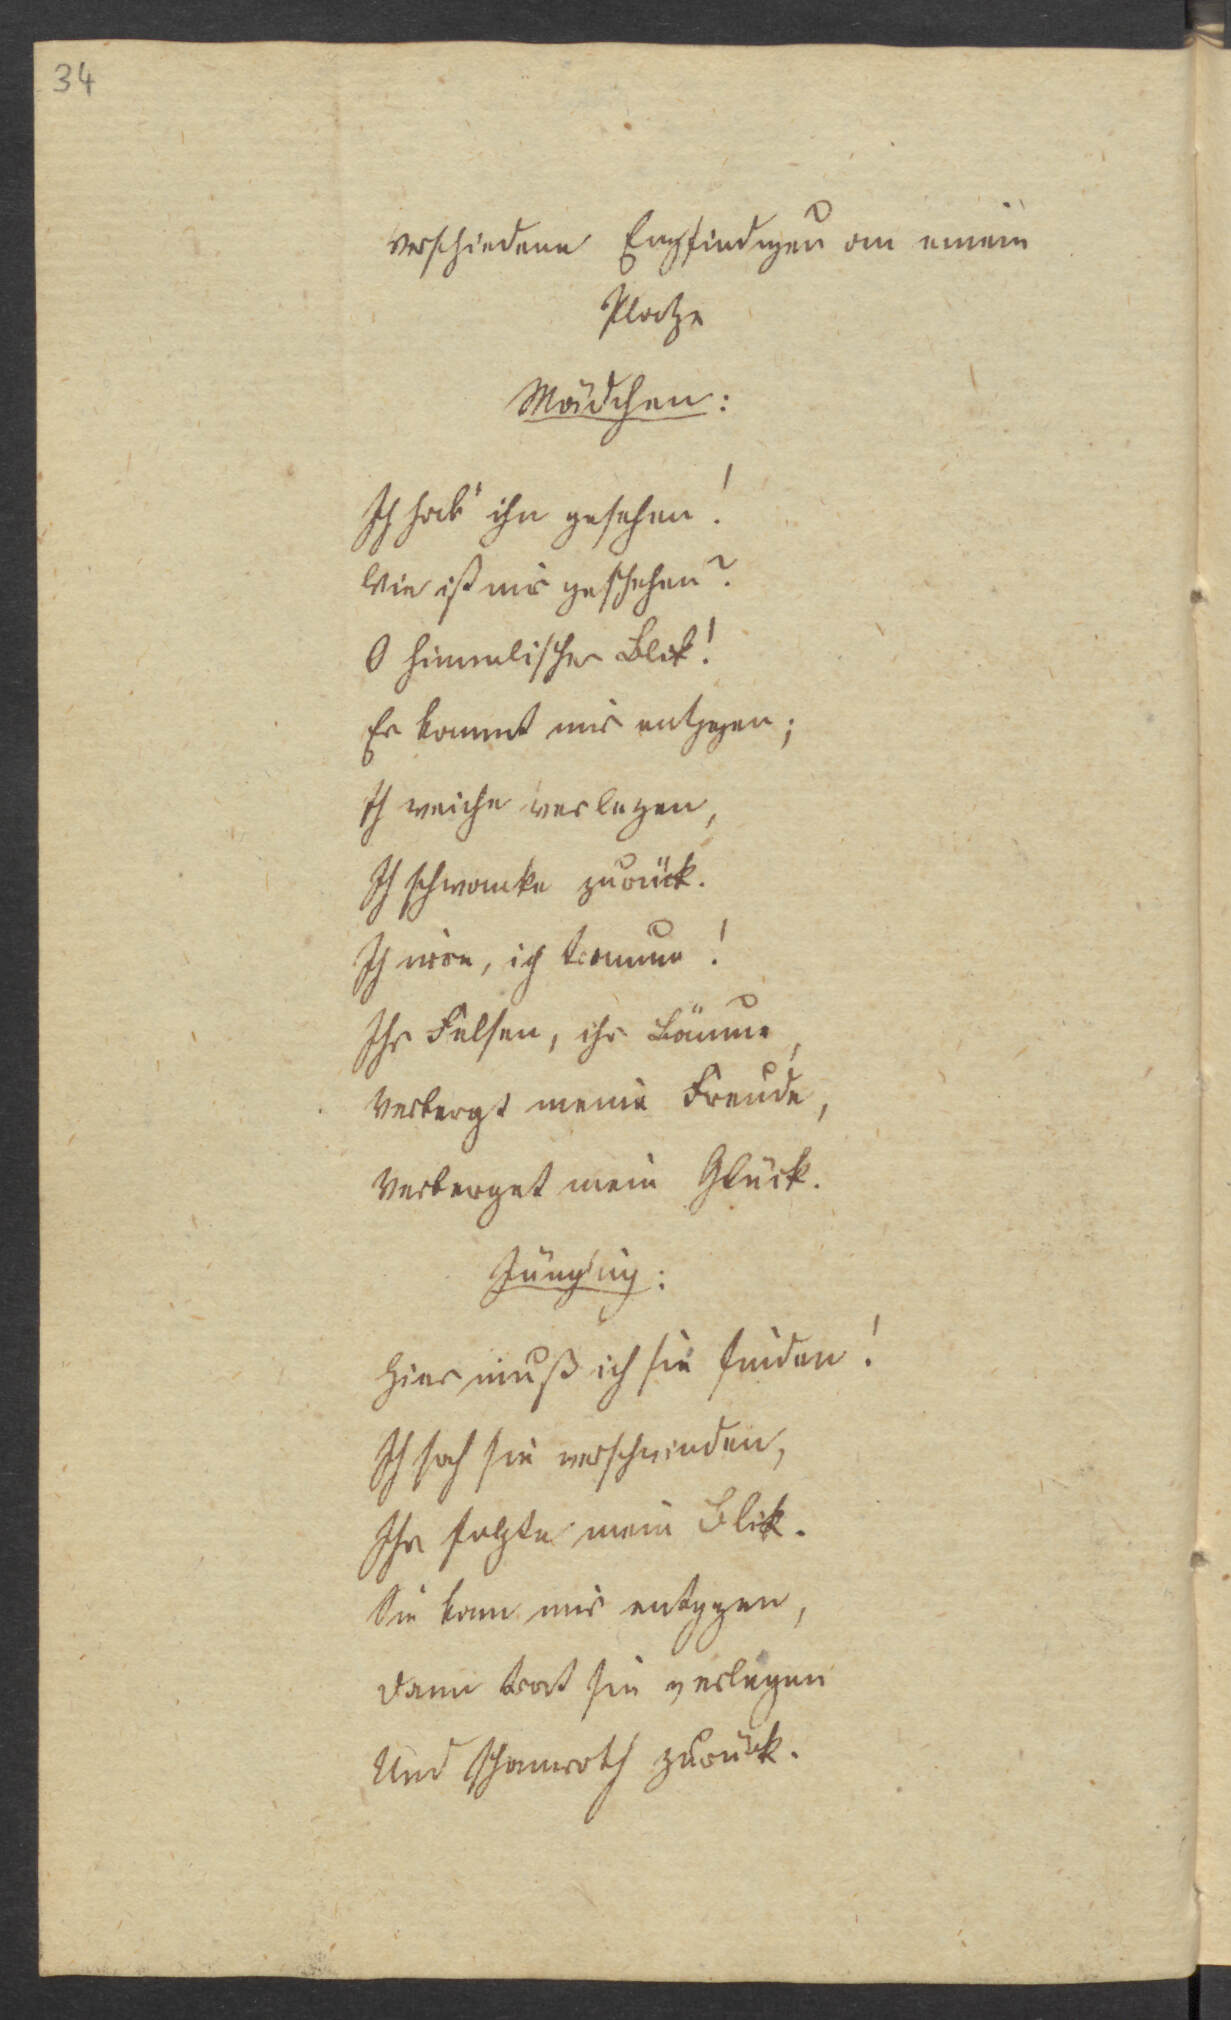 34
Verschiedene Empfindungen an einem
Platze
Mädchen:
Ich hab' ihn gesehen!
Wie ist mir geschehen?
O himmlischer Blik!
Er kommt mir entgegen;
Ich weiche verlegen,
Ich schwanke zurück.
Ich irre, ich traume!
Ihr Felsen, ihr Bäume,
Verbergt meine Freude,
Verberget mein Glück.
Jüngling:
Hier muß ich sie finden!
Ich sah sie verschwinden,
Ihr folgte mein Blik.
Sie kam mir entgegen,
Dann trat sie verlegen
Und schamroth zurück.